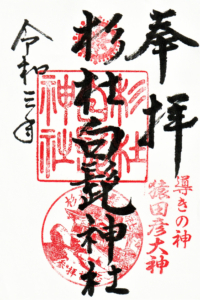 奉拝
杉杜白髭神社
令和三年
導きの神
猿田彦大神